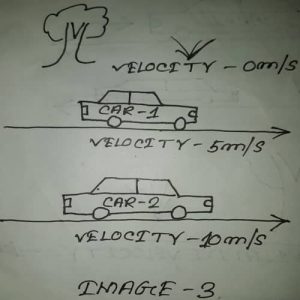 VELOCITY - 0m/s
CAR-1
VELOCITY - 5m/s
CAR-2
VELOCITY - 10m/s
IMAGE - 3